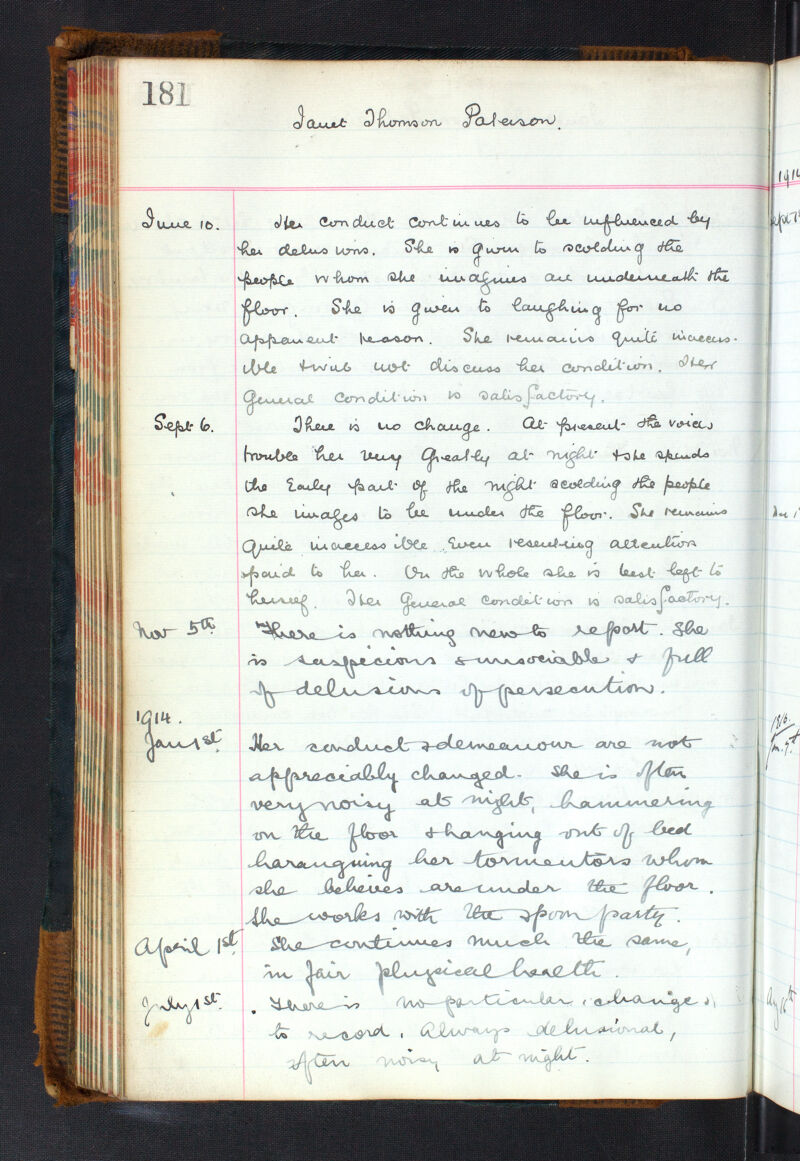 181
Janet Thomson Paterson.
June 10. Her conduct continues to be influenced by
her delusions. She is given to scolding the
people whom she imagines are underneath the
floor. She is given to laughing for no
apparent reason. She remains quite inaccess-
ible & will not discuss her condition. Her
General condition is satisfactory.
Sept 6. There is no change. At present the voices
trouble her very greatly at night & she spends
the Early part of the night scolding the people
she images to be under the floor. She remains
quite inaccessible, Even resenting attention
paid to her. On the whole she is best left to
herself. Her General condition is satisfactory.
Nov 5th. There is nothing new to report. She
is suspicious & unsociable & full
of delusions of persecution.
1914.
Jan 1st. Her conduct & demeanour are not
appreciably changed. She is often
very noisy at night, hammering
on the floor & hanging out of bed
haranguing her tormentors whom
she believes are under the floor.
She works with the spoon party.
April 1st. She continues much the same,
in fair physical health.
July 1st. There is no particular change
to record. Always delusional,
often noisy at night.
1914
Sept
1916
Jan. 9th
Aug 16th